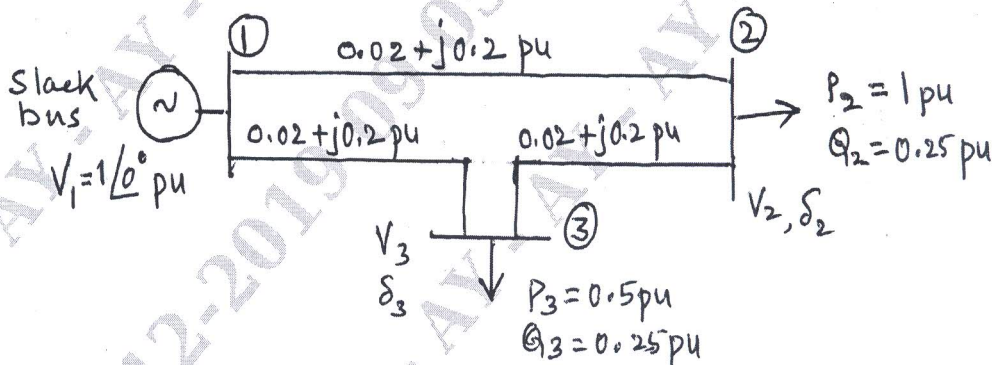 ①
②
0.02+j0.2 pu
Slack
bus
~
V₁=1∠0° pu
0.02+j0.2 pu
0.02+j0.2 pu
P₂ = 1 pu
Q₂ = 0.25 pu
V₂, δ₂
V₃
δ₃
③
P₃ = 0.5 pu
Q₃ = 0.25 pu